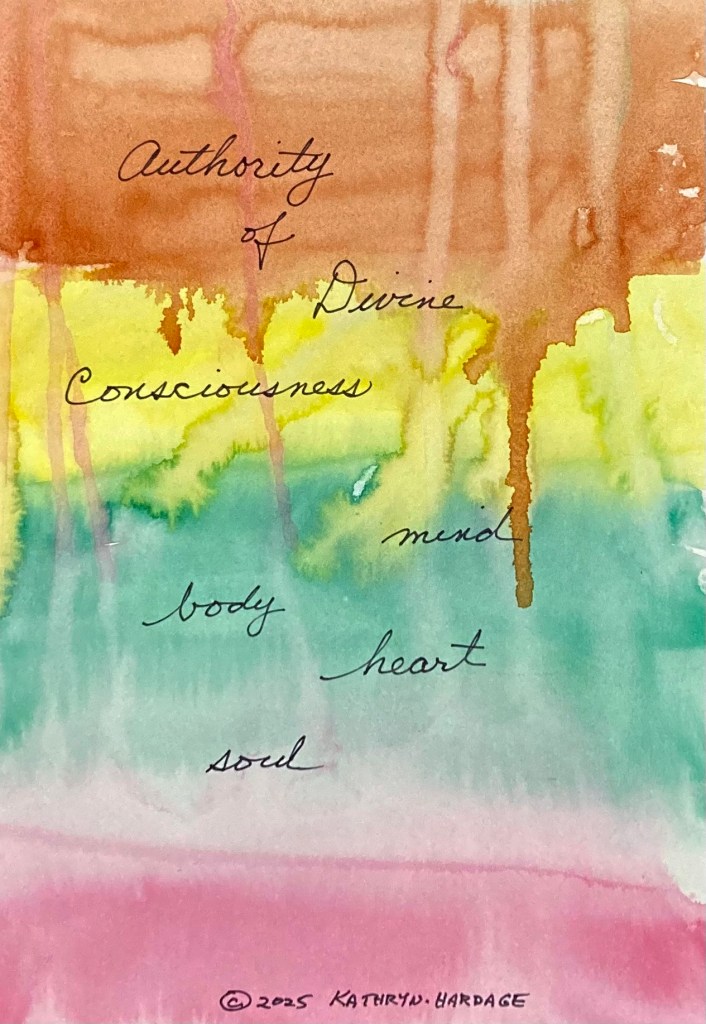 Authority
of
Divine
Consciousness
mind
body
heart
soul
© 2025 KATHRYN • HARDAGE